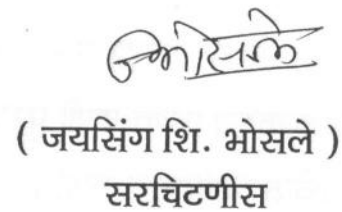 भोसले
( जयसिंग शि. भोसले )
सरचिटणीस